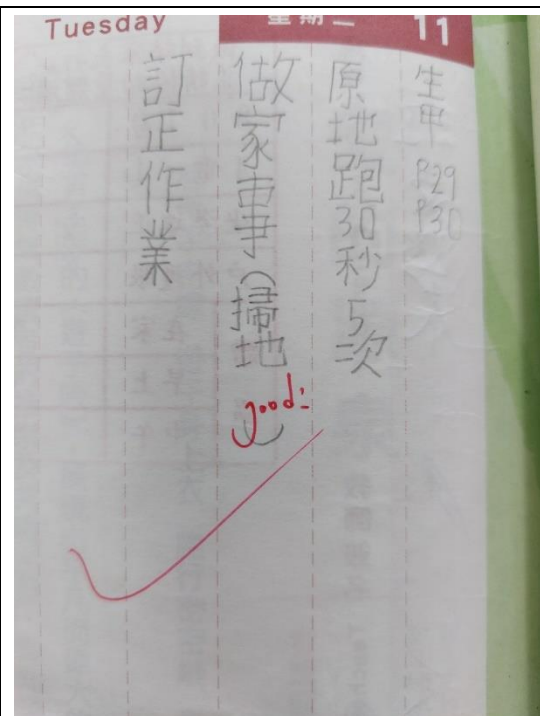 Tuesday
星期二
11
生甲 P29
P30
原地跑30秒5次
做家事(掃地)
good!
訂正作業